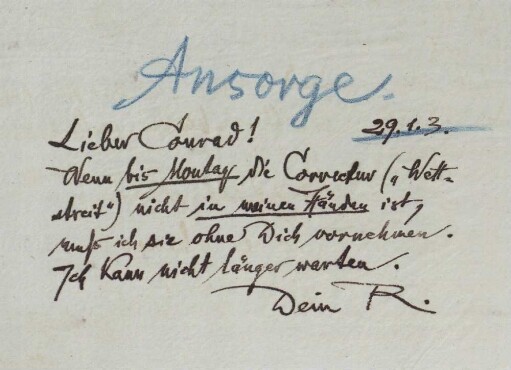 Ansorge.
29.1.3.
Lieber Conrad!
Wenn bis Montag die Correctur („Wett-
streit“) nicht in meinen Händen ist,
muß ich sie ohne Dich vornehmen.
Ich kann nicht länger warten.
Dein R.